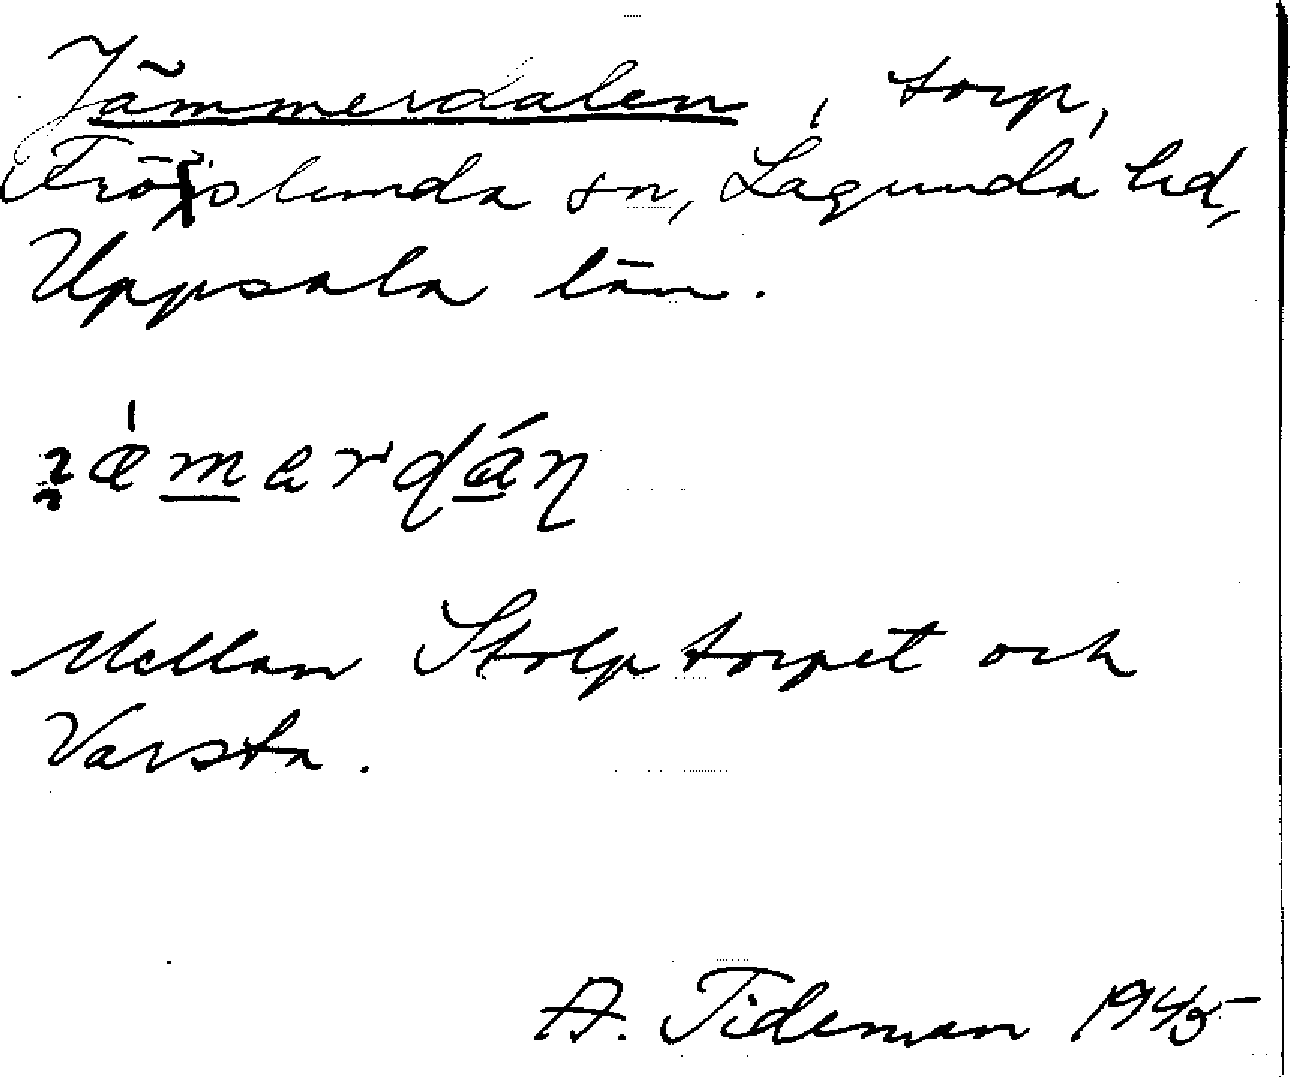 Jämmerdalen, torp,
Fröslunda sn, Lagunda hd,
Uppsala län.
Mellan Stolptorpet och
Varsta.
A. Tideman 1945